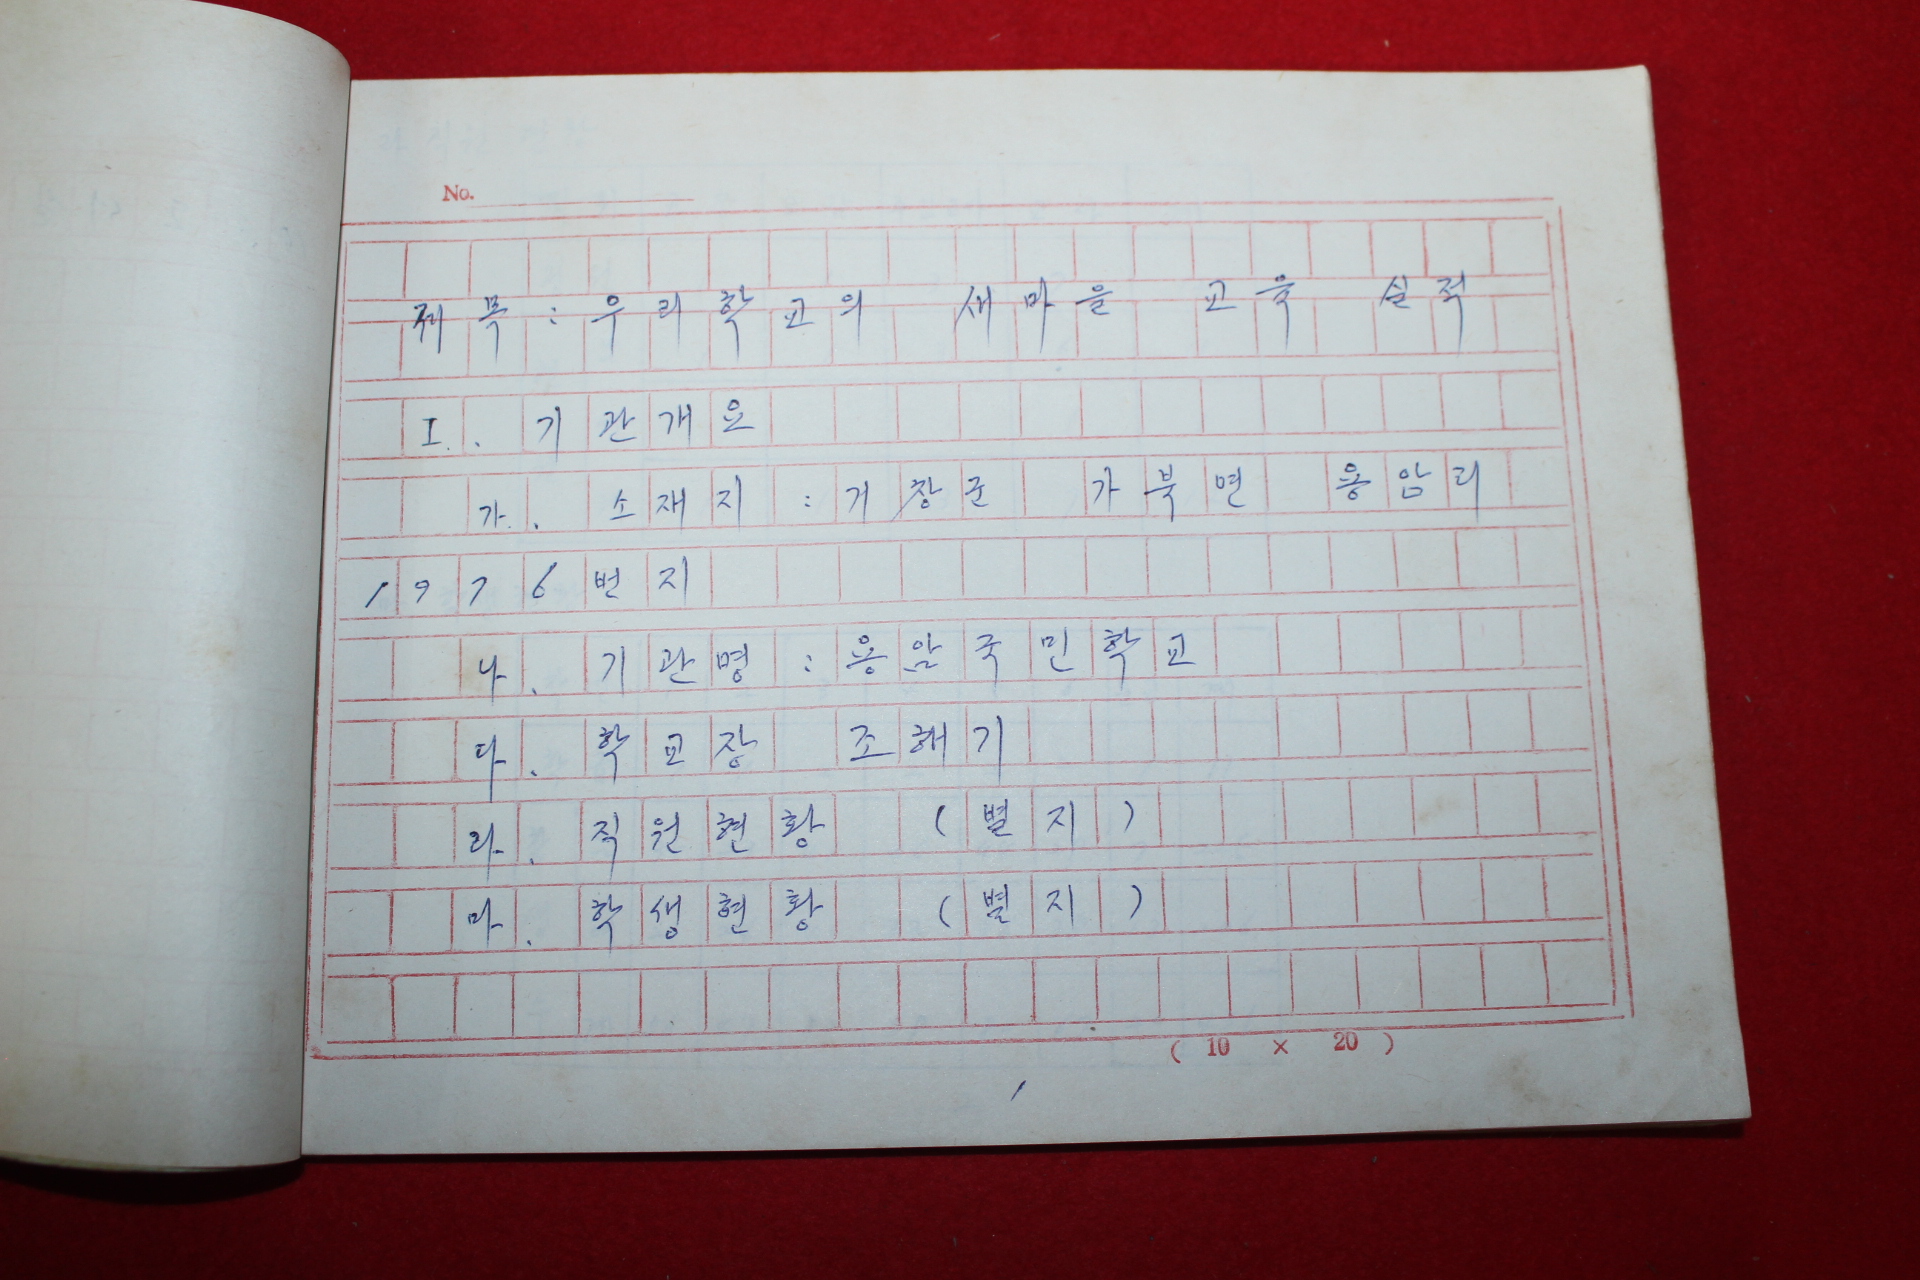 No.
제목 : 우리학교의 새마을 교육 실적
I. 기관개요
가. 소재지 : 거창군 가북면 용암리
1976번지
나. 기관명 : 용암국민학교
다. 학교장 조해기
라. 직원현황 (별지)
마. 학생현황 (별지)
( 10 × 20 )
1